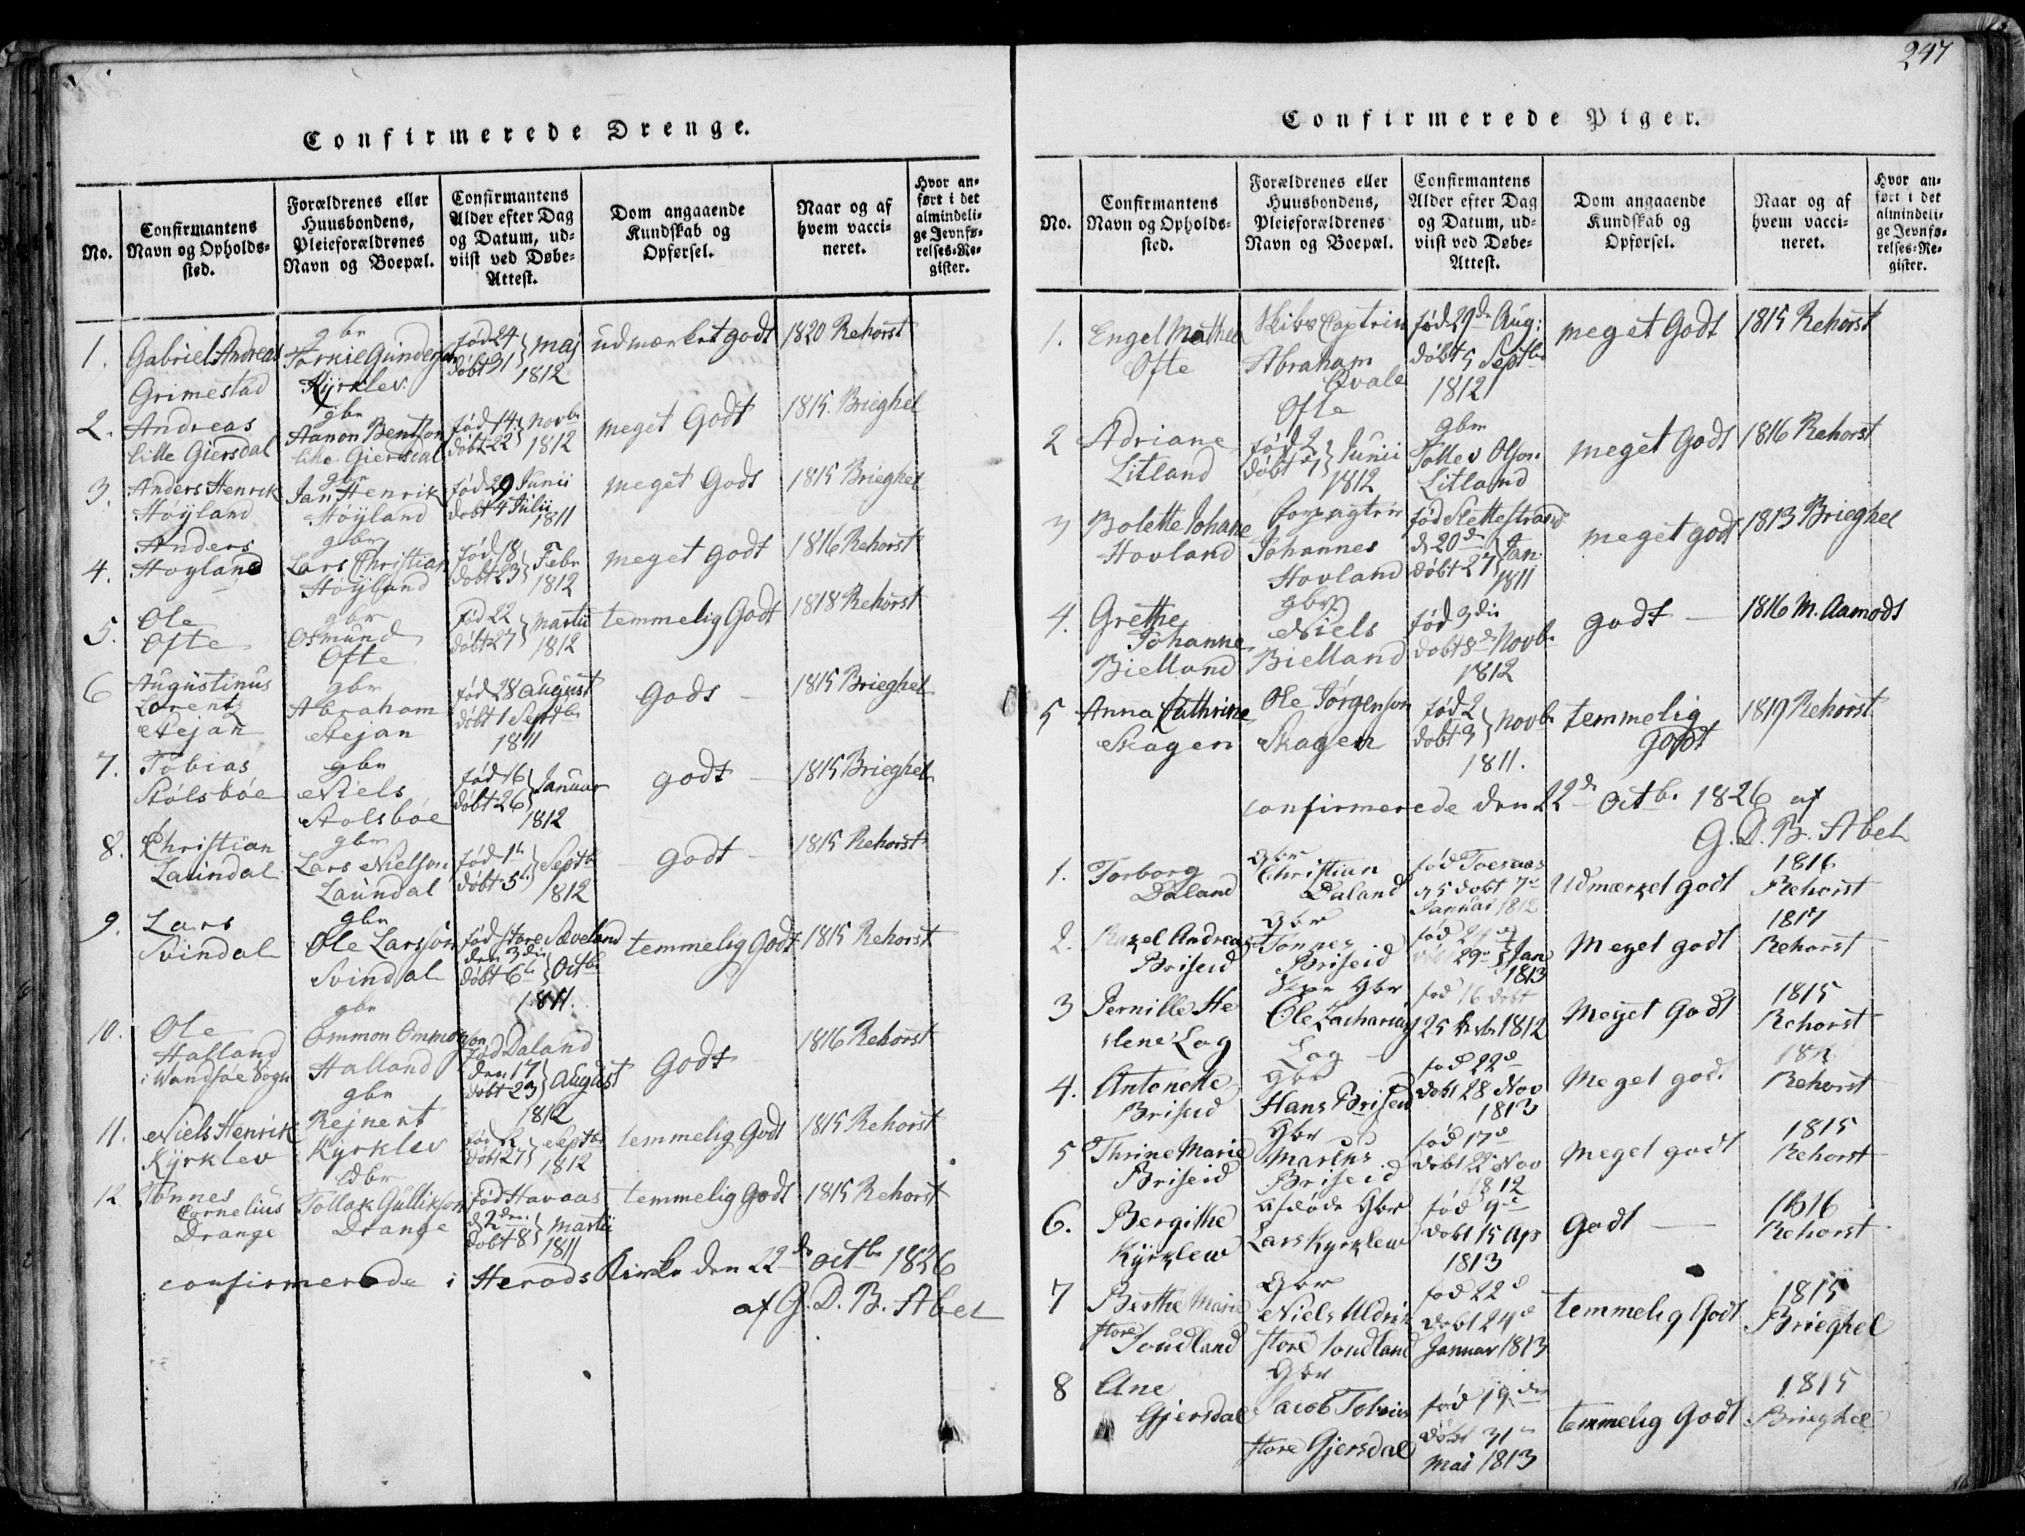 247
Confirmerede Drenge.
No.
Confirmantens
Navn og Opholds-
sted.
Forældrenes eller
Huusbondens,
Pleieforældrenes
Navn og Boepæl.
Confirmantens
Alder efter Dag
og Datum, ud-
viist ved Døbe-
Attest.
Dom angaaende
Kundskab og
Opførsel.
Naar og af
hvem vacci-
neret.
Hvor an-
ført i det
almindeli-
ge Jevnfø-
relses-Re-
gister.
1.
Gabriel Andreas
Grimestad
gbr
Torkil Gunderson
Kÿrklev
fød 24
døbt 31 } maj
1812
udmærket godt
1820 Rehorst
2.
Andreas
Lille Giersdal
gbr
Aanon Bentson
Lille Giersdal
fød 14
døbt 22 } novbr
1812
meget Godt
1815. Brieghel
3.
Anders Henrik
Høÿland
gbr
Jan Henrik
Høÿland
fød 29 Junii
døbt 4 Julii
1811
meget Gods
1815 Brieghel
4.
Anders
Hoÿland
gbr
Lars Christian
Höÿland
fød 18
døbt 23 } Febr
1812
meget Godt
1816 Rehorst
5.
Ole
Ofte
gbr
Osmund
Ofte
fød 22
døbt 27 } martii
1812
temmelig Godt
1818 Rehorst
6
Augustinus
Lorentz
Stejan
gbr
Abraham
Stejan
fød 28 august
døbt 1 Septbr
1811
Gods
1815 Brieghel
7.
Tobias
Stölsböe
gbr
Niels
Stolsböe
fød 16
døbt 26 } Januar
1812
godt
1815 Brieghel
8.
Christian
Laündal
gbr
Lars Nielson
Laündal
fød 1
døbt 5 } Septbr
1812
godt
1815 Rehorst
9.
Lars
Svindal
gbr
Ole Larsson
Svindal
fød store Sæveland
den 3die
døbt 6 } Octbr
1811.
temmelig Godt
1815 Rehorst
10.
Ole
Halland
i Wandsøe Sogn
gbr
Ommon Ommonson
Halland
fød Daland
den 17
døbt 23 } August
1812
Godt
1816 Rehorst
11.
Niels Henrik
Kÿrklev
gbr
Rejnert
Kÿrklev
døbt 27 } Septbr
1812
temmelig Godt
1815 Rehorst
12
Tönnes
Cornelius
Drange
Tollak Gullikson
Drange
fød Havaas
d 2den
døbt 8 } martii
1811
temmelig Godt
1815 Rehorst
confirmerede i Herods Kirke den 22de octbr 1826
af G. D. B. Abel
Confirmerede Piger.
No.
Confirmantens
Navn og Opholds-
sted.
Forældrenes eller
Huusbondens,
Pleieforældrenes
Navn og Boepæl.
Confirmantens
Alder efter Dag
og Datum, ud-
viist ved Døbe-
Attest.
Dom angaaende
Kundskab og
Opførsel.
Naar og af
hvem vacci-
neret.
Hvor an-
ført i det
almindeli-
ge Jevnfø-
relses-Re-
gister.
1.
Engel Mathea
Ofte
Skibs Captein
Abraham
Qvale
Ofte
fød 29de Aug:
døbt 5 Septbr
1812
meget Godt
1815 Rehorst
2
Adriane
Litland
fød 2
døbt 7 } Junii
1812
gbr
Tollev Olson
Litland
meget Godt
1816 Rehorst
3
Bolette Johane
Hovland
Forpagter
Johannes
Hovland
fød Slettestrand
d 20de
døbt 27 } Jan
1811
meget godt
1813 Brieghel
4.
Grethe
Johanne
Bielland
gbr
Niels
Bielland
fød 3die
døbt 8de Novbr
1812
godt
1816 M. Aamods
5
Anna Cathrine
Skagen
Ole Jörgenson
Skagen
fød 2
døbt 3 } novbr
1811.
temmelig
godt
1819 Rehorst
confirmerede den 22de Octbr 1826 af
G. D. B. Abel
1.
Torborg
Daland
Gbr
Christian
Daland
fød Toesaas
d 5 døbt 7de
Januar 1812
Udmærket godt
1816
Rehorst
2.
Andrea
Briseid
Gbr
Tonnes
Briseid
29 Jan
1813
Meget godt
1817
Rehorst
3
Pernille He
lene Log
Gbr
Ole Zacharias
Log
fød 16 døbt
25 1812
Meget Godt
1815
Rehorst
4.
Antonette
Briseid
Gbr
Hans Briseid
fød 22d
døbt 28 Nov
1813
Meget godt
Rehorst
5
Thrine Marie
Briseid
Gbr
Marcus
Briseid
fød 17d
døbt 22 Nov
1812
Meget godt
1815
Rehorst
6.
Bergithe
Kÿrklew
afdøde Gbr
Lars Kyrklew
fød 9de
døbt 15 Ap
1813
Godt
1816
Rehorst
7
Berthe Marie
store
Soudland
Gbr
Niels Uldrik
store Soudland
fød 22d
døbt 24d
Januar 1813
temmelig Godt
1815
Brieghel
8
Ane
Gjersdal
Gbr
Jacob Tobias
store Gjersdal
fød 19den
døbt 31
Mai 1813
temmelig Godt
1815
Brieghel